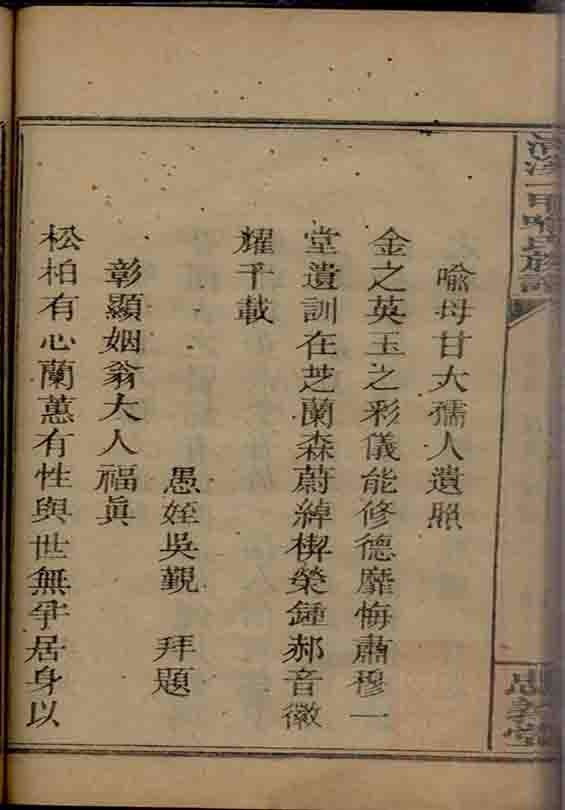 甲喻氏族譜
喻母甘大孺人遺照
金之英玉之彩儀能修德靡悔肅穆一
堂遺訓在芝蘭森蔚綽楔榮鍾郝音徽
耀千載
愚姪吳覲　拜題
彰顯姻翁大人福眞
松柏有心蘭蕙有性與世無爭居身以
忠孝堂